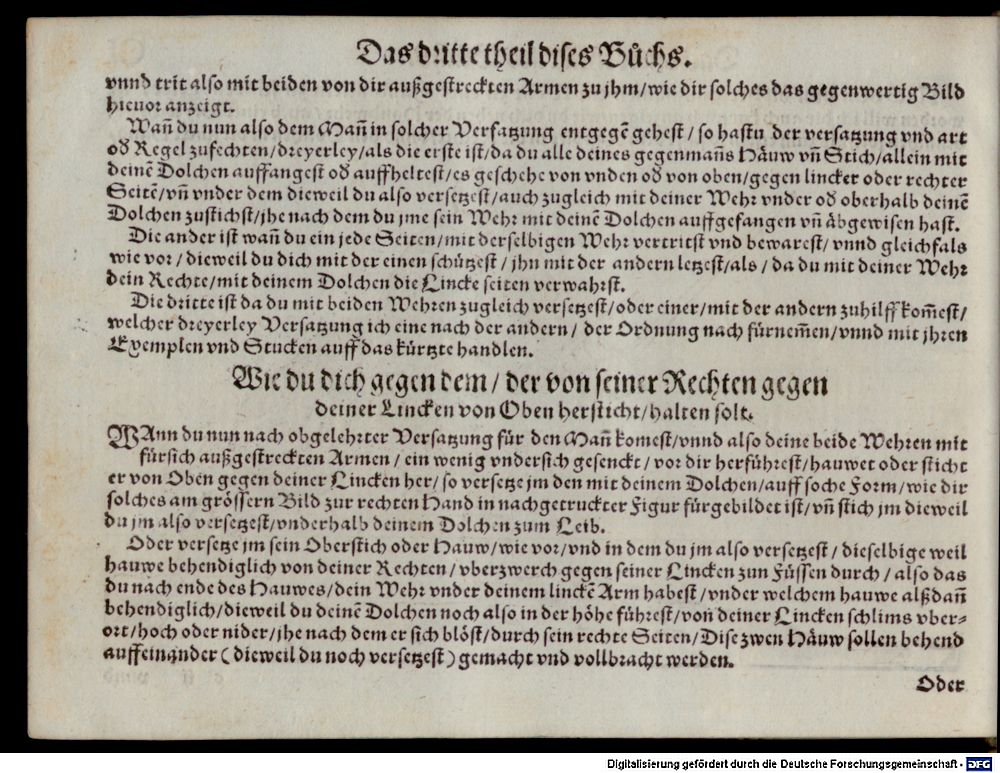 Das dritte theil dises Bůchs.
vnnd trit also mit beiden von dir außgestreckten Armen zu jhm/wie dir solches das gegenwertig Bild
hieuor anzeigt.
Wañ du nun also dem Mañ in solcher Versatzung entgegē gehest/ so hastu der versatzung vnd art
oď Regel zufechten/dreyerley/als die erste ist/da du alle deines gegenmañs Häuw vñ Stich/allein mit
deinē Dolchen auffangest oď auffheltest/es geschehe von vnden oď von oben/gegen lincker oder rechter
Seitē/vñ vnder dem dieweil du also versetzest/auch zugleich mit deiner Wehr vnder oď oberhalb deinē
Dolchen zustichst/jhe nach dem du jme sein Wehr mit deinē Dolchen auffgefangen vñ abgewisen hast.
Die ander ist wañ du ein jede Seiten/mit derselbigen Wehr vertritst vnd bewarest/ vnnd gleichfals
wie vor/ dieweil du dich mit der einen schützest/ jhn mit der andern letzest/als/ da du mit deiner Wehr
dein Rechte/mit deinem Dolchen die Lincke seiten verwahrst.
Die dritte ist da du mit beiden Wehren zugleich versetzest/oder einer/mit der andern zuhilff kom̃est/
welcher dreyerley Versatzung ich eine nach der andern/ der Ordnung nach fürnem̃en/vnnd mit jhren
Exemplen vnd Stucken auff das kürtzte handlen.
Wie du dich gegen dem/ der von seiner Rechten gegen
deiner Lincken von Oben hersticht/halten solt.
WAnn du nun nach obgelehrter Versatzung für den Mañ komest/vnnd also deine beide Wehren mit
fürsich außgestreckten Armen/ ein wenig vndersich gesenckt/ vor dir herführest/hauwet oder sticht
er von Oben gegen deiner Lincken her/ so versetze jm den mit deinem Dolchen/auff soche Form/wie dir
solches am grössern Bild zur rechten Hand in nachgetruckter Figur fürgebildet ist/vñ stich jm dieweil
du jm also versetzest/vnderhalb deinem Dolchen zum Leib.
Oder versetze jm sein Oberstich oder Hauw/wie vor/vnd in dem du jm also versetzest/ dieselbige weil
hauwe behendiglich von deiner Rechten/ vberzwerch gegen seiner Lincken zun Füssen durch/ also das
du nach ende des Hauwes/dein Wehr vnder deinem linckē Arm habest/vnder welchem hauwe alßdañ
behendiglich/dieweil du deinē Dolchen noch also in der höhe führest/von deiner Lincken schlims vber-
ort/hoch oder nider/jhe nach dem er sich blöst/durch sein rechte Seiten/Dise zwen Häuw sollen behend
auffeinander (dieweil du noch versetzest) gemacht vnd vollbracht werden.
Oder
Digitalisierung gefördert durch die Deutsche Forschungsgemeinschaft - DFG